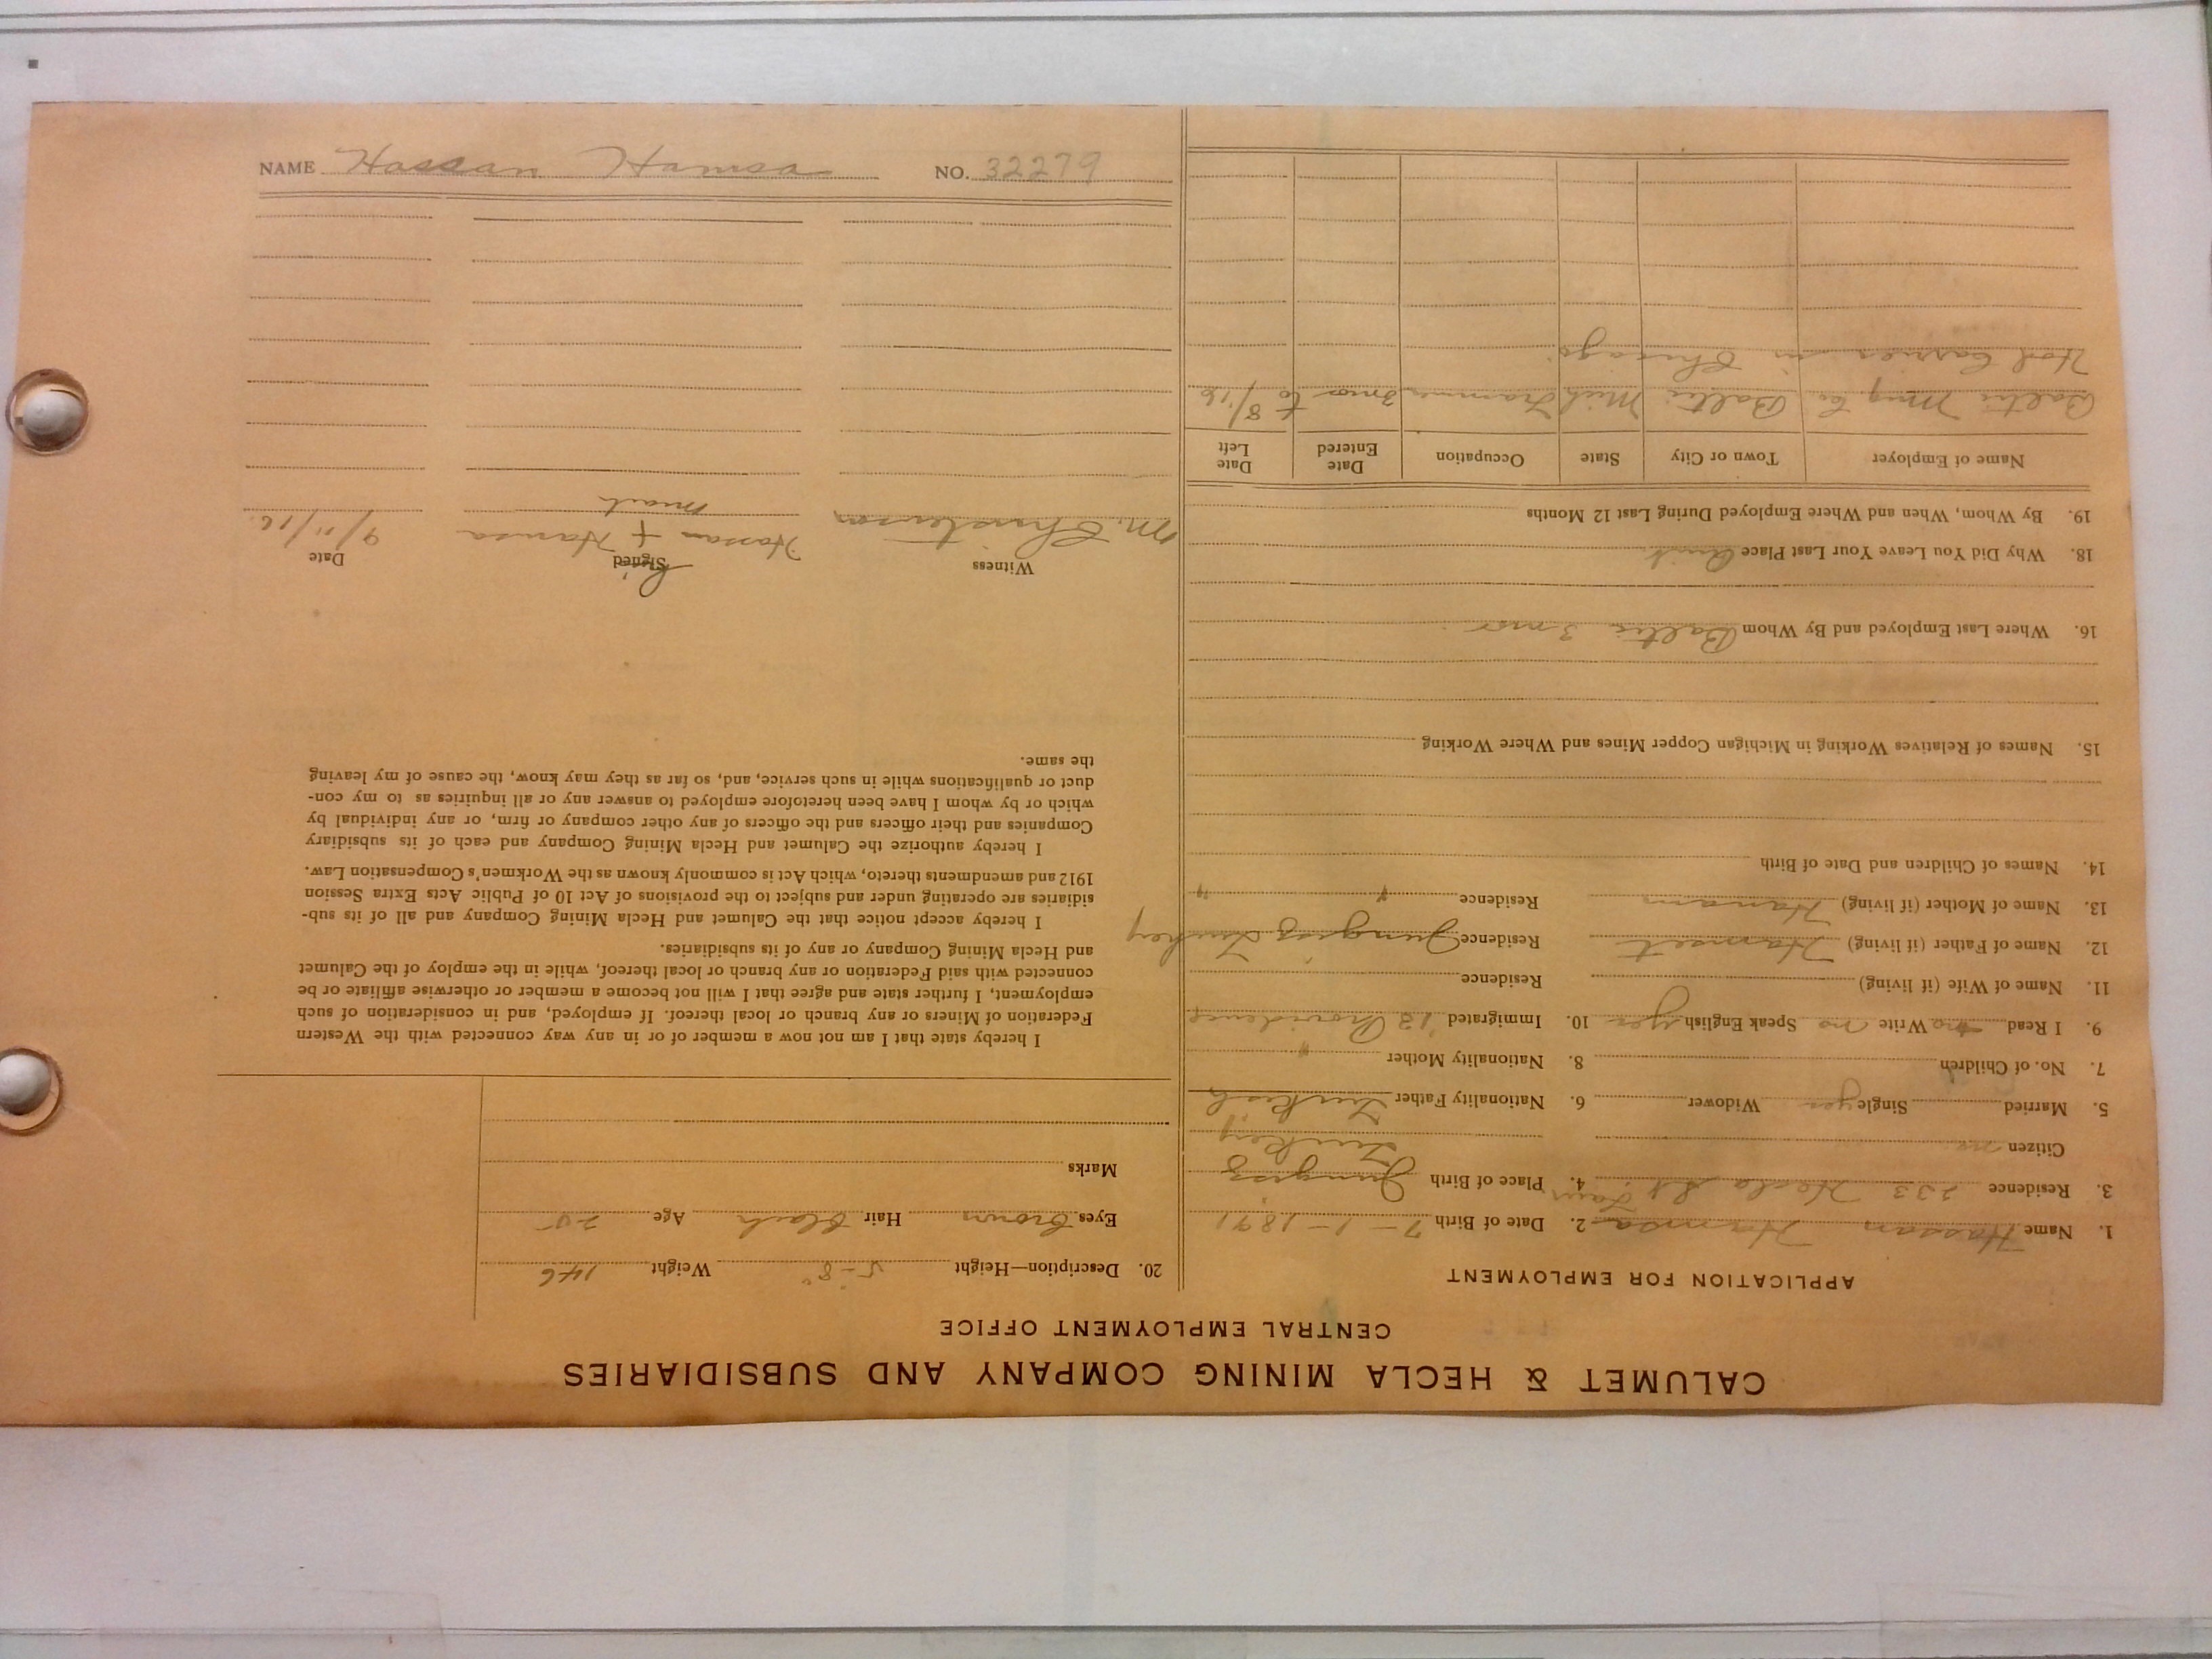 CALUMET & HECLA MINING COMPANY AND SUBSIDIARIES
CENTRAL EMPLOYMENT OFFICE
APPLICATION FOR EMPLOYMENT
1. Name Hassan Hamsa 2. Date of Birth 7-1-1891
3. Residence 233 Hecla St 4. Place of Birth
Citizen no Turkey
5. Married Single yes Widower 6. Nationality Father Turkish
7. No. of Children 8. Nationality Mother "
9. I Read no Write no Speak English yes 10. Immigrated '12 Providence
11. Name of Wife (if living) Residence
12. Name of Father (if living) Residence Turkey
13. Name of Mother (if living) Residence " "
14. Names of Children and Date of Birth
15. Names of Relatives Working in Michigan Copper Mines and Where Working
16. Where Last Employed and By Whom Baltic 3 mos
18. Why Did You Leave Your Last Place Quit
19. By Whom, When and Where Employed During Last 12 Months
Name of Employer Town or City State Occupation Date Entered Date Left
Baltic Mng Co Baltic Mich Trammer 3 mos to 8/16
Hod Carrier in Chicago
20. Description—Height 5-8" Weight 146
Eyes brown Hair black Age 25
Marks
I hereby state that I am not now a member of or in any way connected with the Western
Federation of Miners or any branch or local thereof. If employed, and in consideration of such
employment, I further state and agree that I will not become a member or otherwise affiliate or be
connected with said Federation or any branch or local thereof, while in the employ of the Calumet
and Hecla Mining Company or any of its subsidiaries.
I hereby accept notice that the Calumet and Hecla Mining Company and all of its sub-
sidiaries are operating under and subject to the provisions of Act 10 of Public Acts Extra Session
1912 and amendments thereto, which Act is commonly known as the Workmen's Compensation Law.
I hereby authorize the Calumet and Hecla Mining Company and each of its subsidiary
Companies and their officers and the officers of any other company or firm, or any individual by
which or by whom I have been heretofore employed to answer any or all inquiries as to my con-
duct or qualifications while in such service, and, so far as they may know, the cause of my leaving
the same.
Witness Signed Date
his
M. Christenson Hassan + Hamsa 9/11/16
mark
NAME Hassan Hamsa NO. 32279